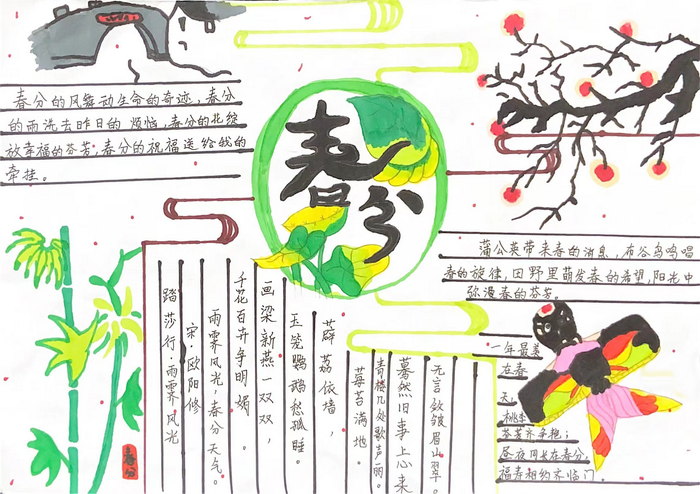 春分的风舞动生命的奇迹，春分
的雨洗去昨日的烦恼，春分的花绽
放幸福的芬芳，春分的祝福送给我的
牵挂。
春分
蒲公英带来春的消息，布谷鸟鸣唱
春的旋律，田野里萌发春的希望，阳光中
弥漫春的芬芳。
踏莎行·雨霁风光
宋·欧阳修
雨霁风光，春分天气。
千花百卉争明媚。
画梁新燕一双双，
玉笼鹦鹉愁孤睡。
薜荔依墙，
莓苔满地。
青楼几处歌声丽。
蓦然旧事上心来
无言敛皱眉山翠。
一年最美
在春
天，
桃李
芬芳齐争艳；
昼夜同长在春分，
福寿相约齐临门。
春分